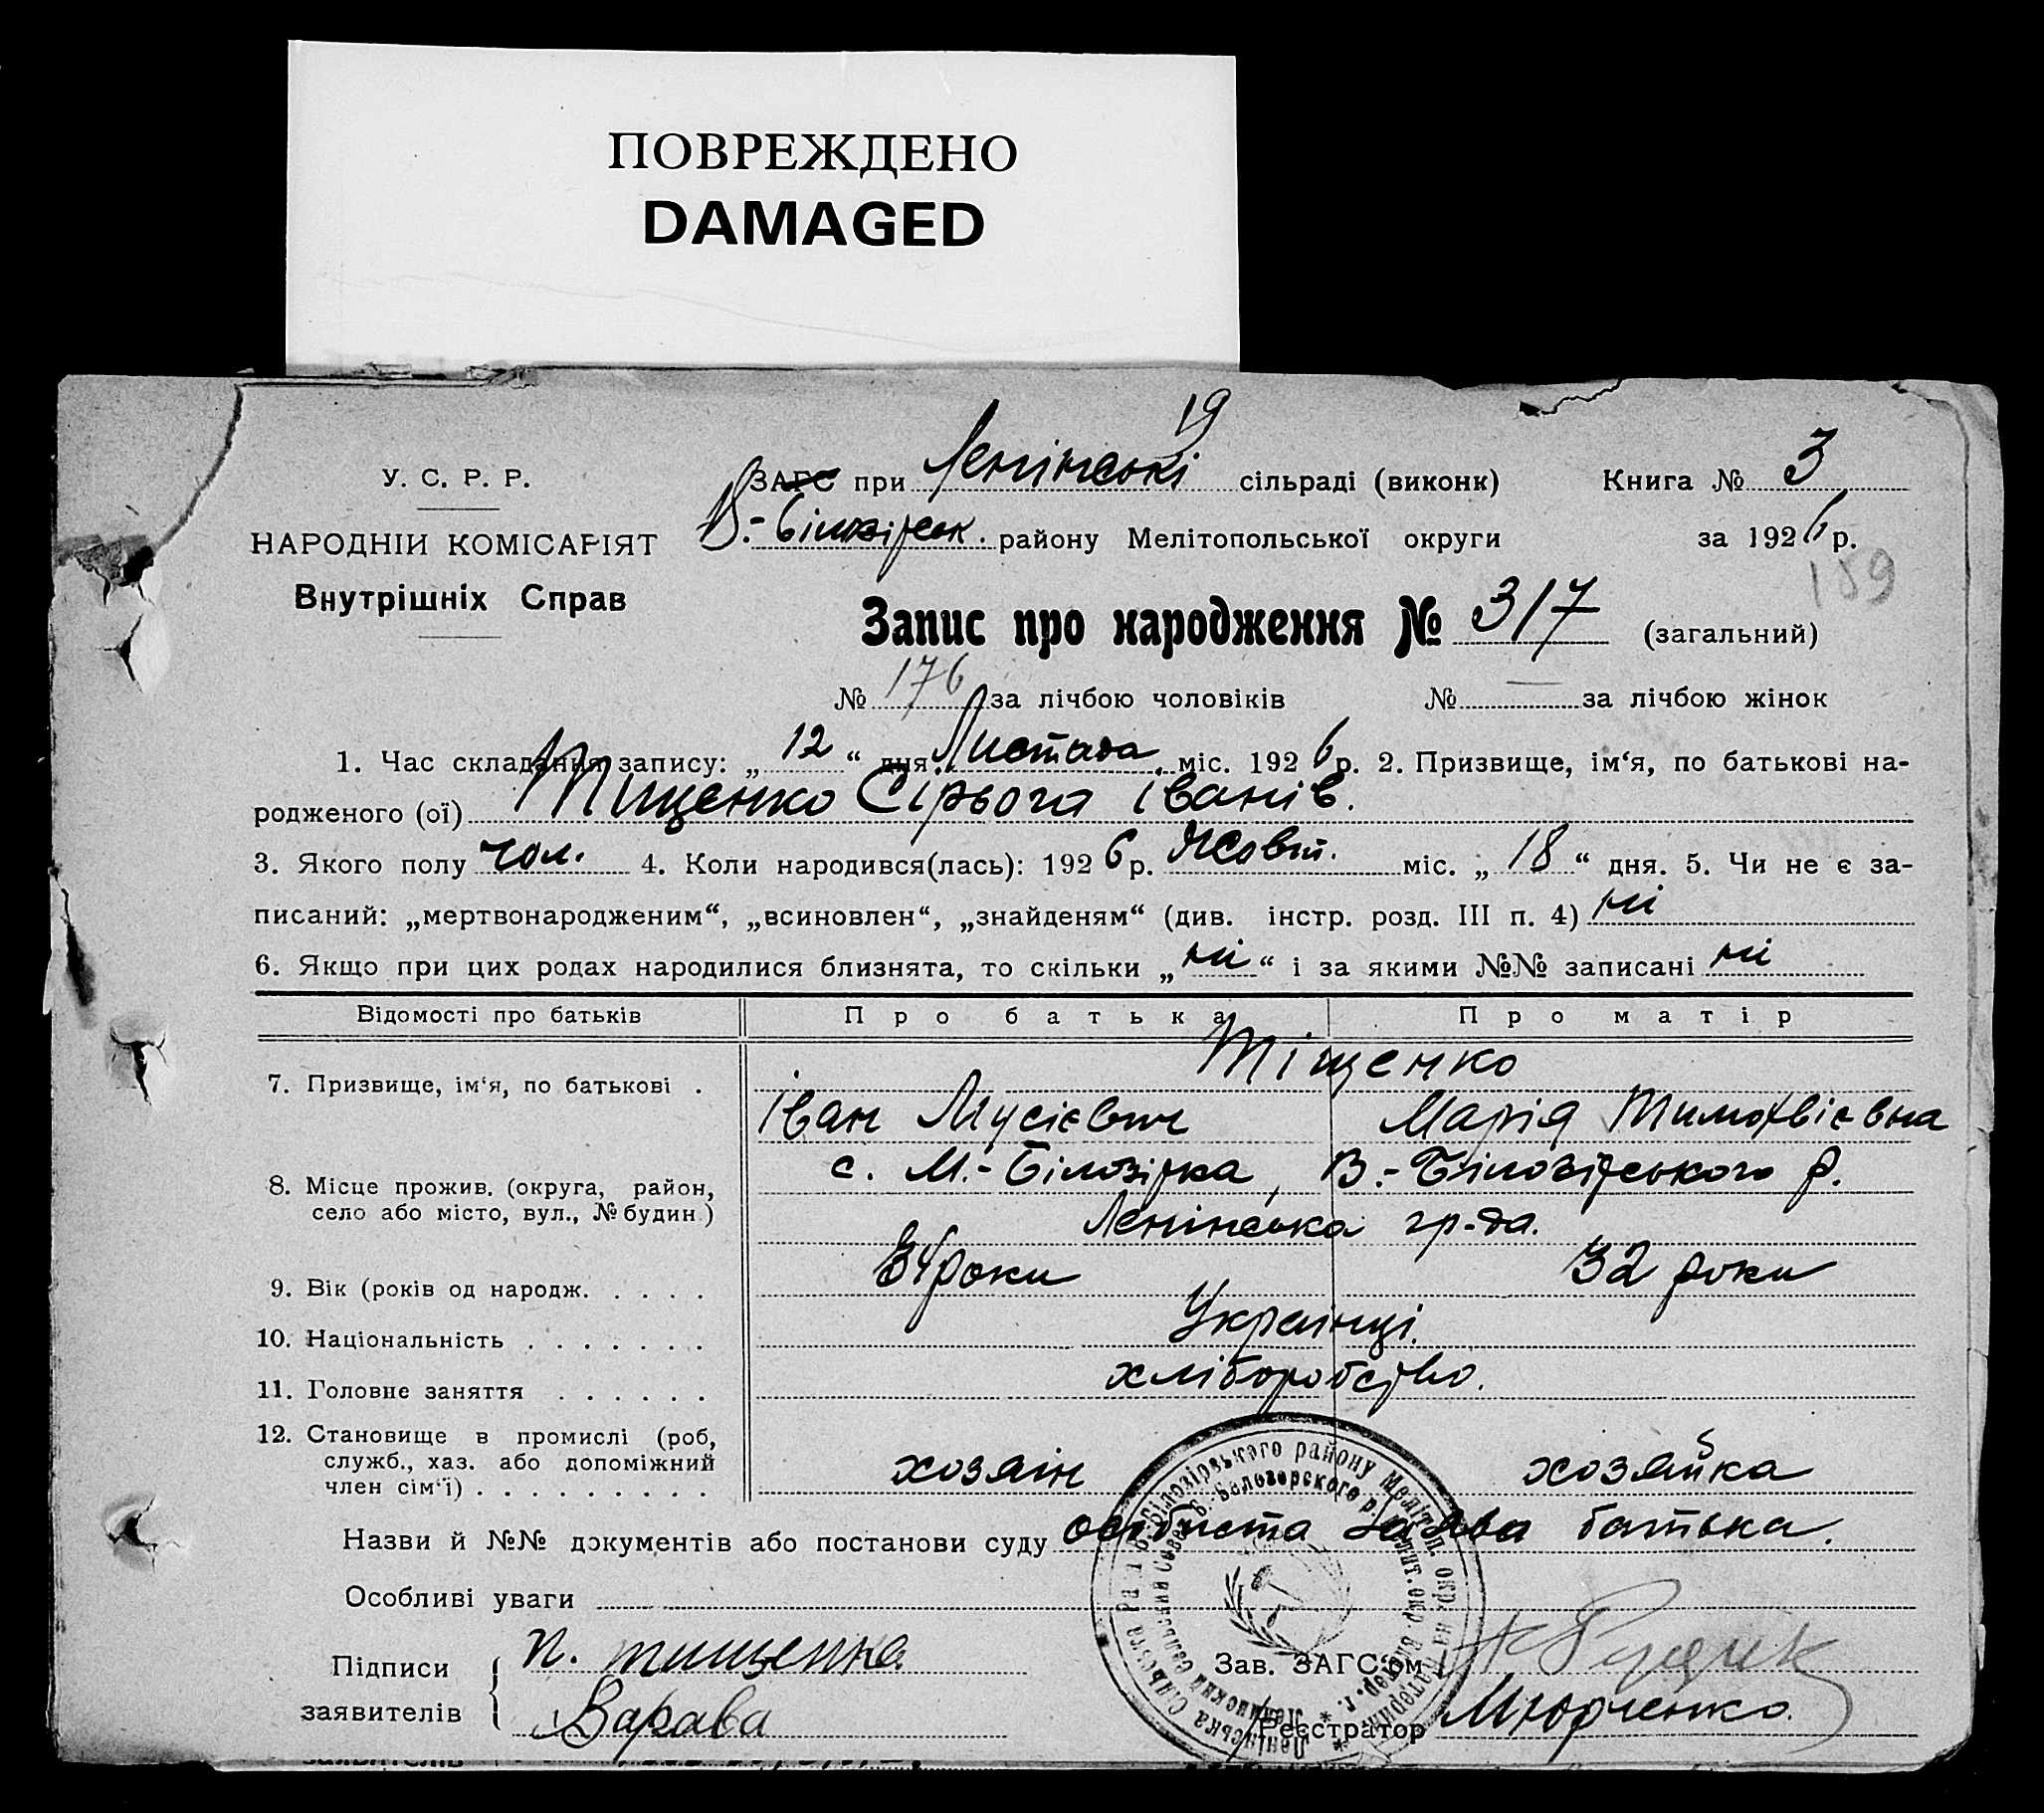 ПОВРЕЖДЕНО
DAMAGED
19
У. С. Р. Р.
ЗАГС при Ленінські сільраді (виконк) Книга № 3
НАРОДНІЙ КОМІСАРІЯТ
В.-Білозірськ. району Мелітопольської округи за 1926 р.
Внутрішніх Справ
189
Запис про народження № 317 (загальний)
№ 176 за лічбою чоловіків № — за лічбою жінок
1. Час складання запису: „12“ дня Листопада міс. 1926 р. 2. Призвище, ім‘я, по батькові на-
родженого (ої) Тищенко Сірьога Іванів.
3. Якого полу чол. 4. Коли народився(лась): 1926 р. Жовт. міс. „18“ дня. 5. Чи не є за-
писаний: „мертвонародженим“, „всиновлен“, „знайденям“ (див. інстр. розд. III п. 4) ні
6. Якщо при цих родах народилися близнята, то скільки „ні“ і за якими №№ записані ні
Відомості про батьків Про батька Про матір
Тіщенко
7. Призвище, ім‘я, по батькові .
Іван Мусієвич Марія Тимохвієвна
8. Місце прожив. (округа, район, село або місто, вул., № будин.)
с. М.-Білозірка, В.-Білозірського р.
Ленінська гр-да.
9. Вік (років од народж. . . . . 34 роки 32 роки
10. Національність . . . . . . . Українці.
11. Головне заняття . . . . . . хліборобство.
12. Становище в промислі (роб, служб., хаз. або допоміжний член сім‘ї) . . . . . . . . . хозяін хозяйка
Назви й №№ документів або постанови суду особиста заява батька.
Особливі уваги
Підписи заявителів
п. тищенко
Варава
Зав. ЗАГС‘ом
Реєстратор Мюрченко.
Ленінська Сільська Рада В.-Білозірського району Мелітоп. окр.